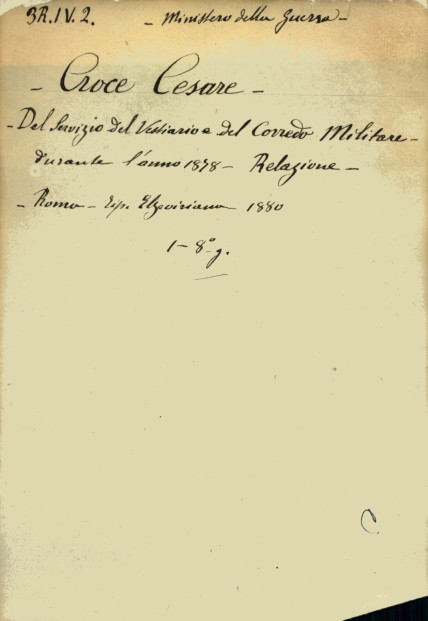 3A.IV.2. - Ministero della Guerra -
- Croce Cesare -
- Del Servizio del Vestiario e del Corredo Militare -
durante l'anno 1878 - Relazione -
- Roma - Tip. Elzeviriana 1880
1 - 8° g.
C